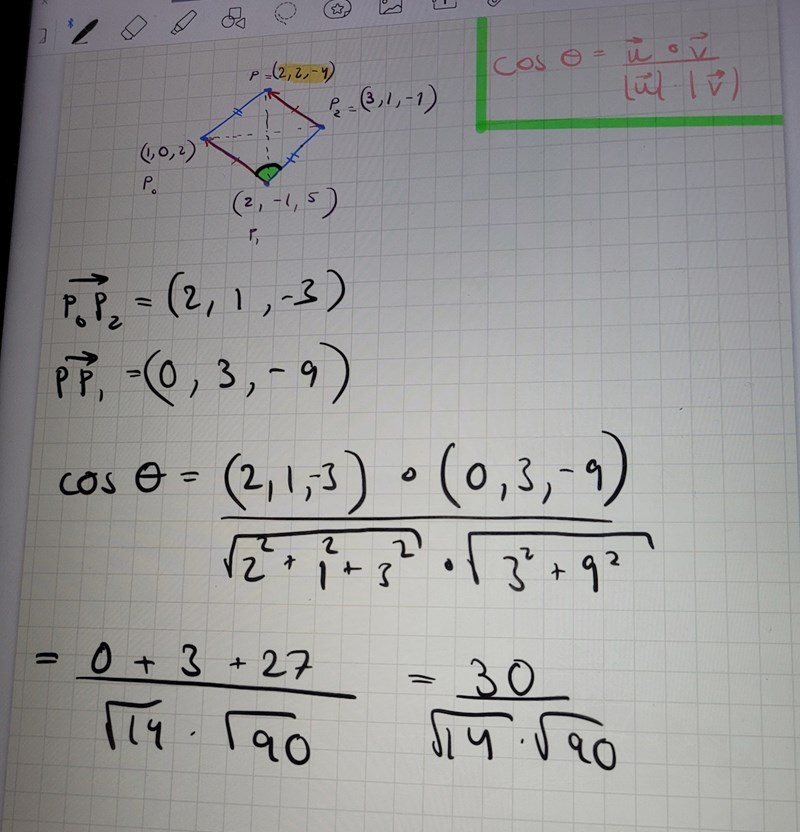 P = (2, 2, -4)
cos θ = u⃗ ∘ v⃗ / |u⃗| · |v⃗|
P₂ = (3, 1, -1)
(1, 0, 2)
P₀
(2, -1, 5)
P₁
P₀P₂ = (2, 1, -3)
PP₁ = (0, 3, -9)
cos θ = (2, 1, -3) ∘ (0, 3, -9) / √2² + 1² + 3² · √3² + 9²
= 0 + 3 + 27 / √14 · √90 = 30 / √14 · √90